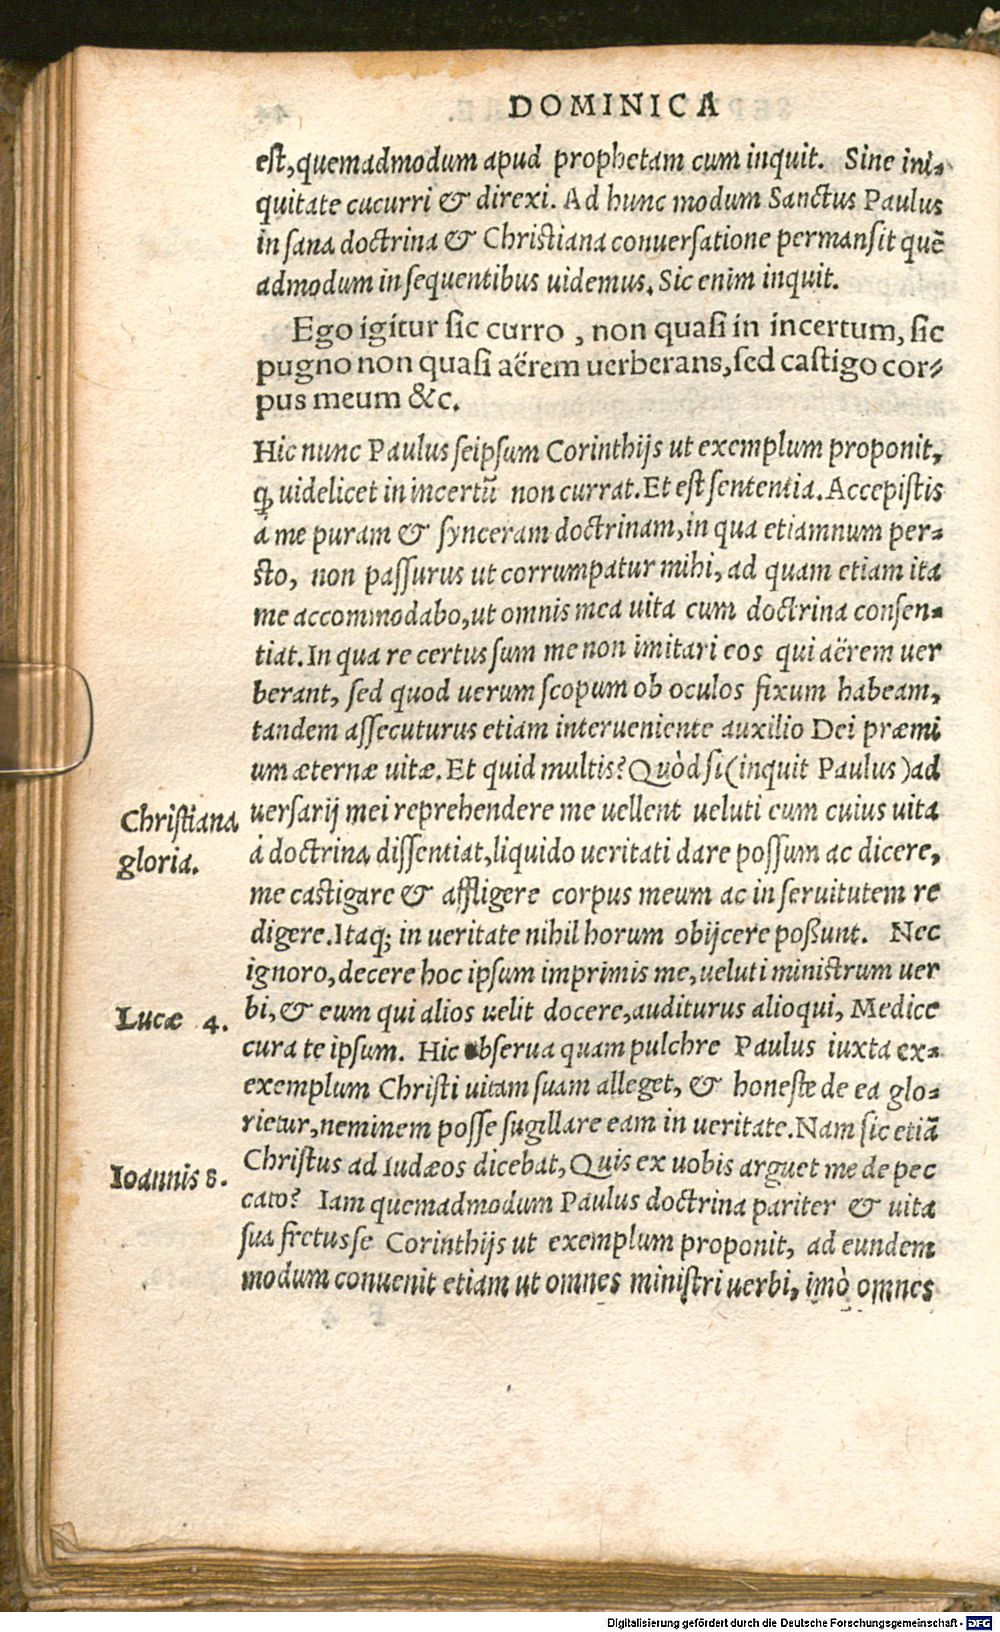 DOMINICA
est, quemadmodum apud prophetam cum inquit. Sine ini-
quitate cucurri & direxi. Ad hunc modum Sanctus Paulus
in sana doctrina & Christiana conuersatione permansit quē
admodum in sequentibus uidemus. Sic enim inquit.
Ego igitur sic curro, non quasi in incertum, sic
pugno non quasi aërem uerberans, sed castigo cor-
pus meum &c.
Hic nunc Paulus seipsum Corinthijs ut exemplum proponit,
ꝙ uidelicet in incertū non currat. Et est sententia. Accepistis
à me puram & synceram doctrinam, in qua etiamnum per-
sto, non passurus ut corrumpatur mihi, ad quam etiam ita
me accommodabo, ut omnis mea uita cum doctrina consen-
tiat. In qua re certus sum me non imitari eos qui aërem uer
berant, sed quod uerum scopum ob oculos fixum habeam,
tandem assecuturus etiam interueniente auxilio Dei præmi
um æternæ uitæ. Et quid multis? Quòd si (inquit Paulus) ad
Christiana
gloria.
uersarij mei reprehendere me uellent ueluti eum cuius uita
à doctrina dissentiat, liquido ueritati dare possum ac dicere,
me castigare & affligere corpus meum ac in seruitutem re
digere. Itaq; in ueritate nihil horum obijcere poßunt. Nec
ignoro, decere hoc ipsum imprimis me, ueluti ministrum uer
Lucæ 4.
bi, & eum qui alios uelit docere, auditurus alioqui, Medice
cura te ipsum. Hic obserua quam pulchre Paulus iuxta ex-
exemplum Christi uitam suam alleget, & honeste de ea glo-
rietur, neminem posse sugillare eam in ueritate. Nam sic etiā
Ioannis 8.
Christus ad Iudæos dicebat, Quis ex uobis arguet me de pec
cato? Iam quemadmodum Paulus doctrina pariter & uita
sua fretus se Corinthijs ut exemplum proponit, ad eundem
modum conuenit etiam ut omnes ministri uerbi, imò omnes
Digitalisierung gefördert durch die Deutsche Forschungsgemeinschaft - DFG